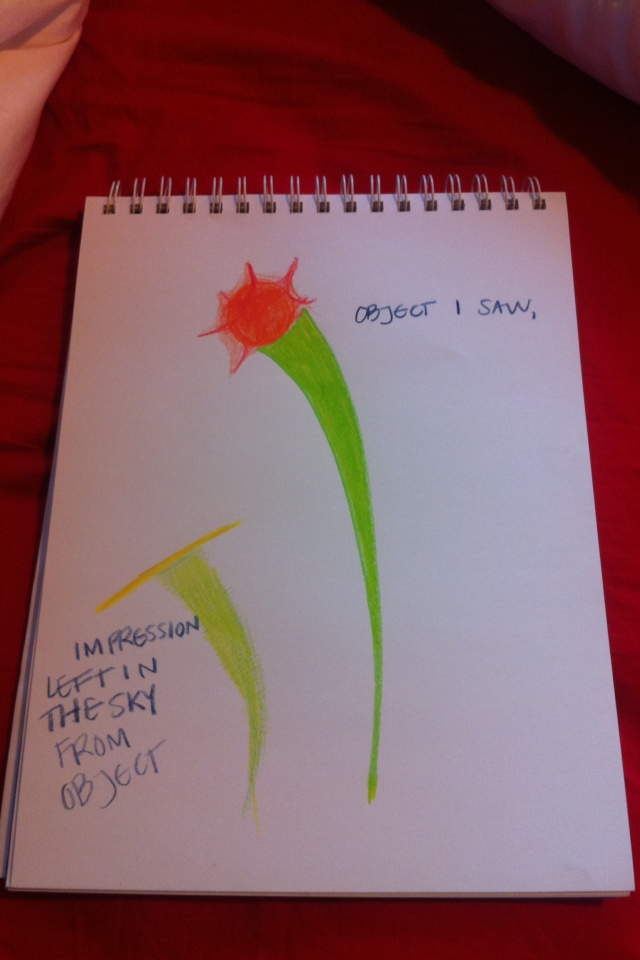 OBJECT I SAW,
IMPRESSION
LEFT IN
THE SKY
FROM
OBJECT